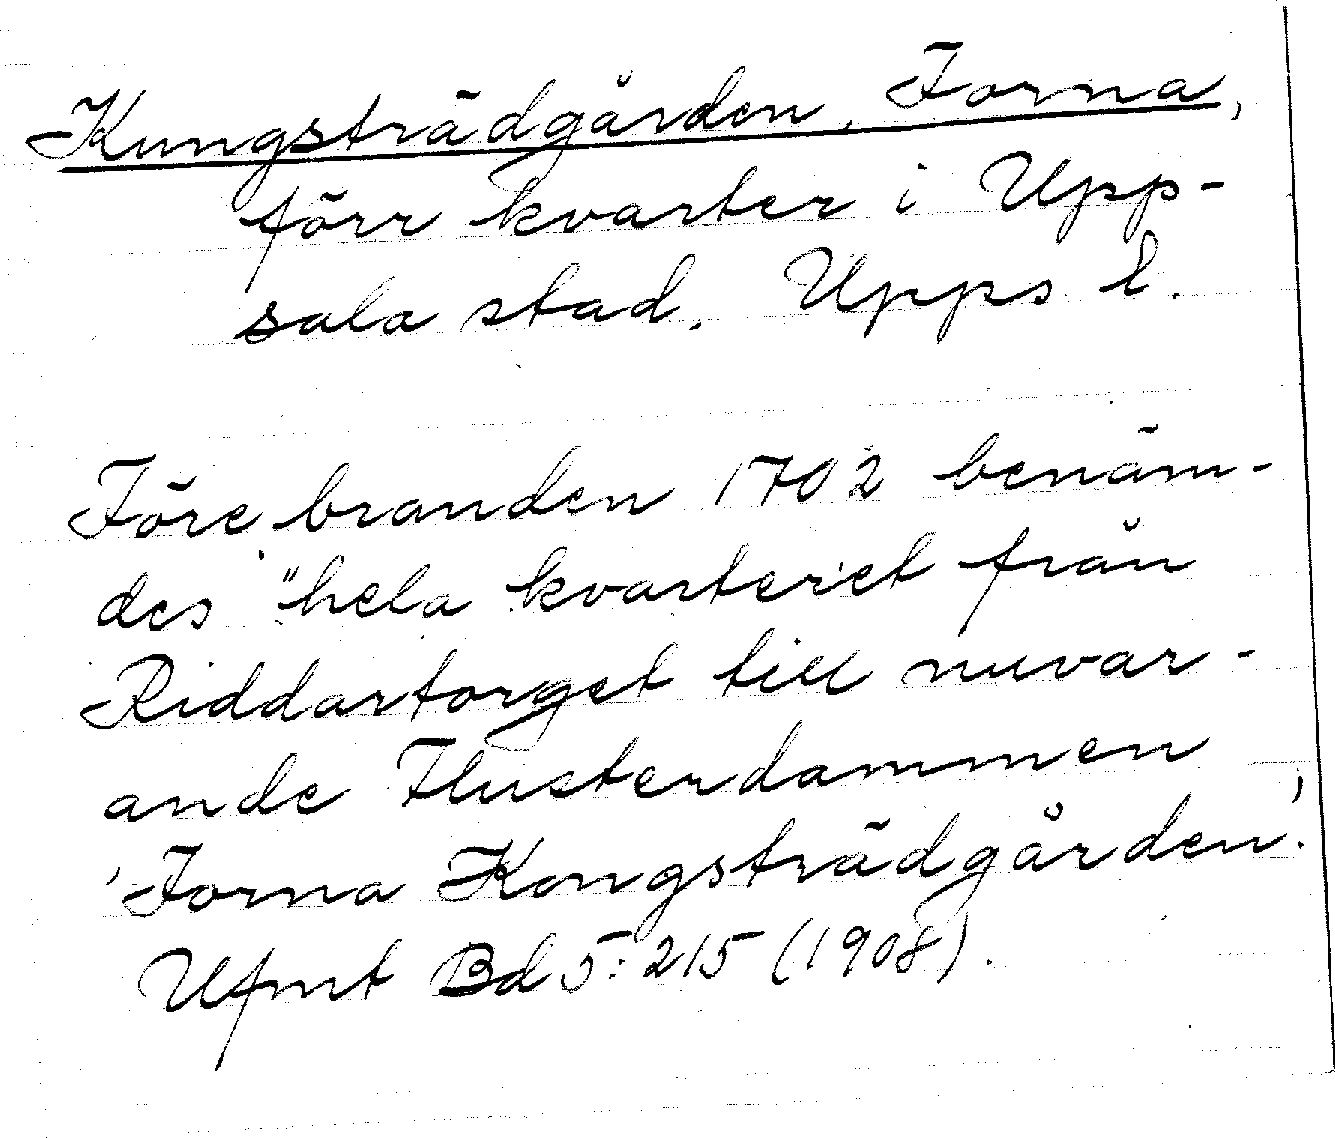 Kungsträdgården, Forna,
förr kvarter i Upp-
sala stad. Upps l.
Före branden 1702 benäm-
des "hela kvarteret från
Riddartorget till nuvar-
ande Flusterdammen
'Forna Kongsträdgården'.
Ufmt Bd 5:215 (1908).